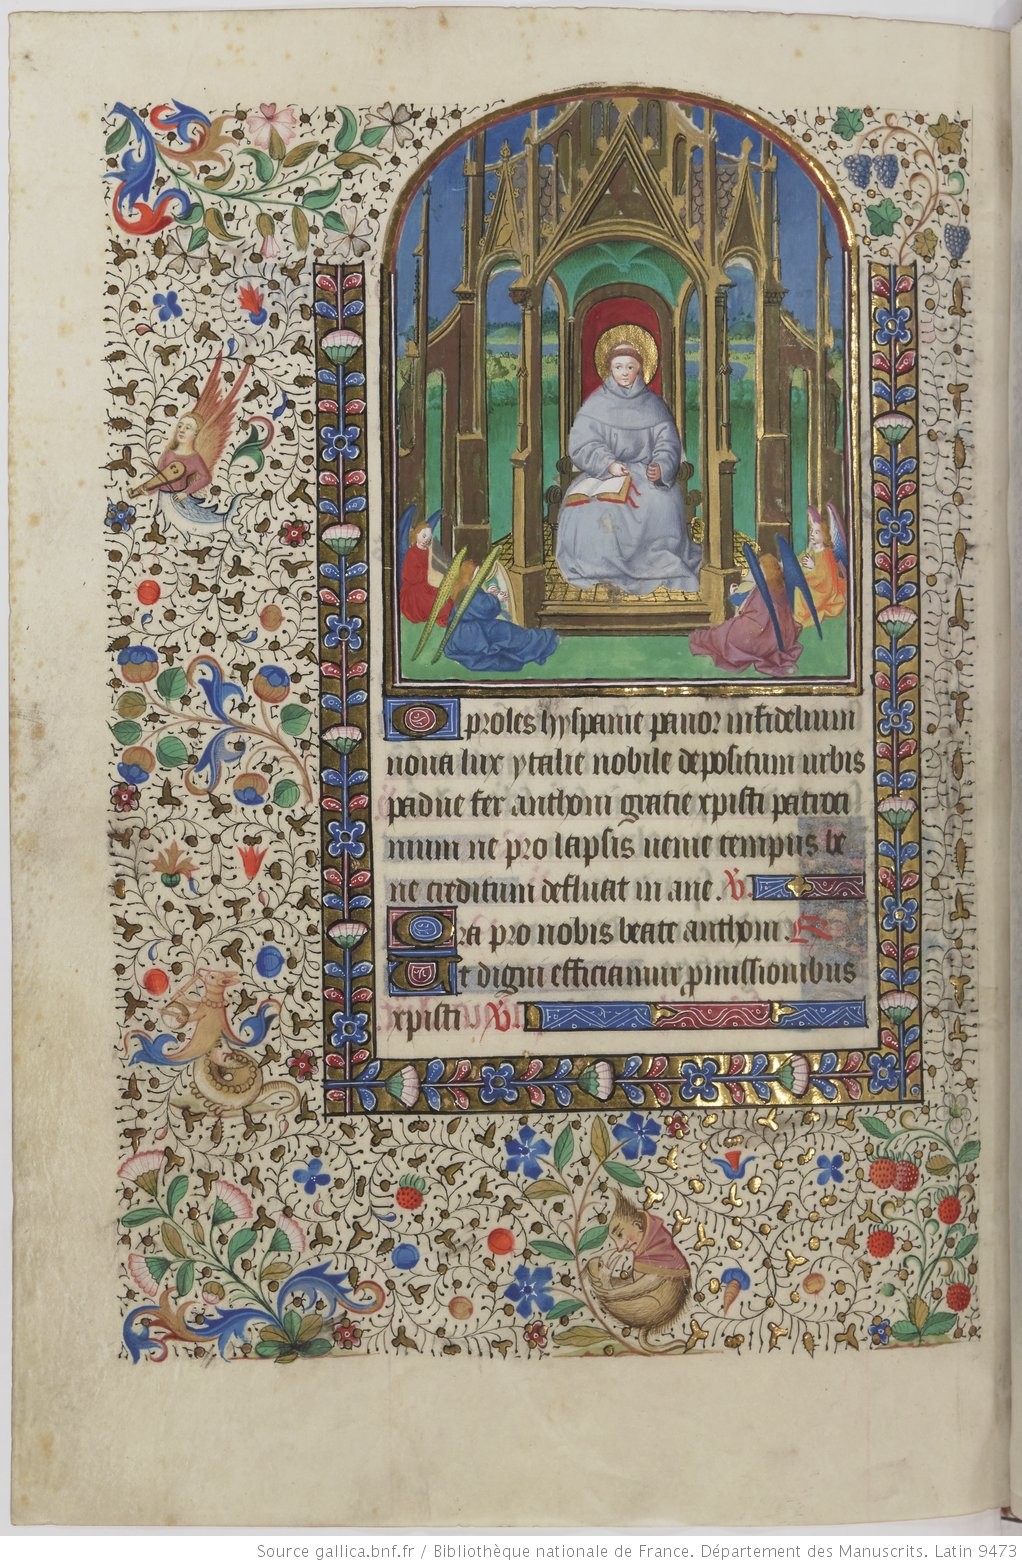 O proles hyspanie pauor infidelium
noua lux ytalie nobile depositum urbis
padue fer anthoni gratie xpisti patroci
nium ne pro lapsis uenie tempus bre
ue creditum defluat in ane. V.
Ora pro nobis beate anthoni R
Et digni efficiamur pmissionibus
xpisti V.
Source gallica.bnf.fr / Bibliothèque nationale de France. Département des Manuscrits. Latin 9473